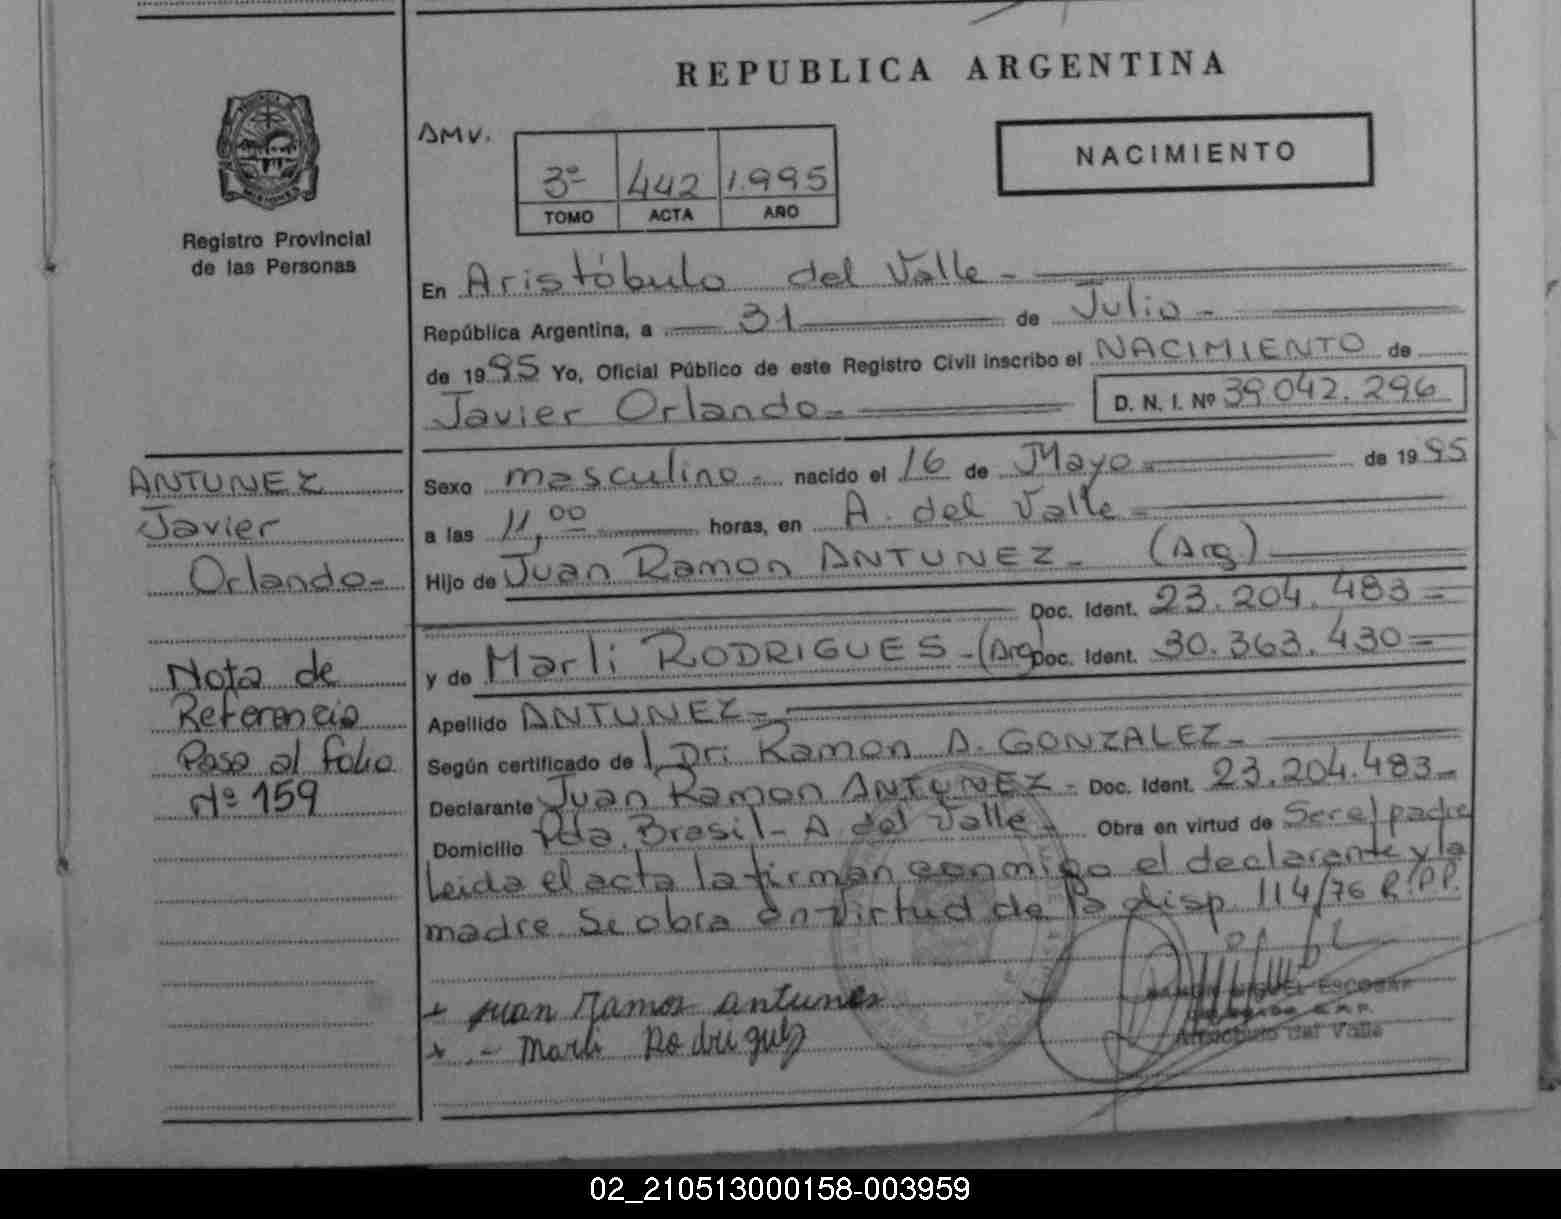 REPUBLICA ARGENTINA
AMV.
3º 442 1.995
TOMO ACTA AÑO
NACIMIENTO
Registro Provincial
de las Personas
En Aristóbulo del Valle -
República Argentina, a 31 de Julio -
de 1995 Yo, Oficial Público de este Registro Civil inscribo el NACIMIENTO de
Javier Orlando - D. N. I. Nº 39.042.296
ANTUNEZ
Javier
Orlando-
Nota de
Referencia
Paso al folio
Nº 159
Sexo masculino - nacido el 16 de Mayo - de 1995
a las 11,00 horas, en A. del Valle -
Hijo de Juan Ramon ANTUNEZ - (Arg.)
Doc. Ident. 23.204.483 -
y de Marli RODRIGUES - (Arg) Doc. Ident. 30.363.430 -
Apellido ANTUNEZ -
Según certificado de Dr: Ramon A. GONZALEZ -
Declarante Juan Ramon ANTUNEZ - Doc. Ident. 23.204.483 -
Domicilio Pda. Brasil - A del Valle - Obra en virtud de Ser el padre
Leida el acta la firman conmigo el declarante y la
madre Se obra en virtud de la disp. 114/76 R.P.P.
+ juan Ramon antunes
+ - Marli Rodriguez
RAMON MIGUEL ESCOBAR
Aristóbulo del Valle
02_210513000158-003959